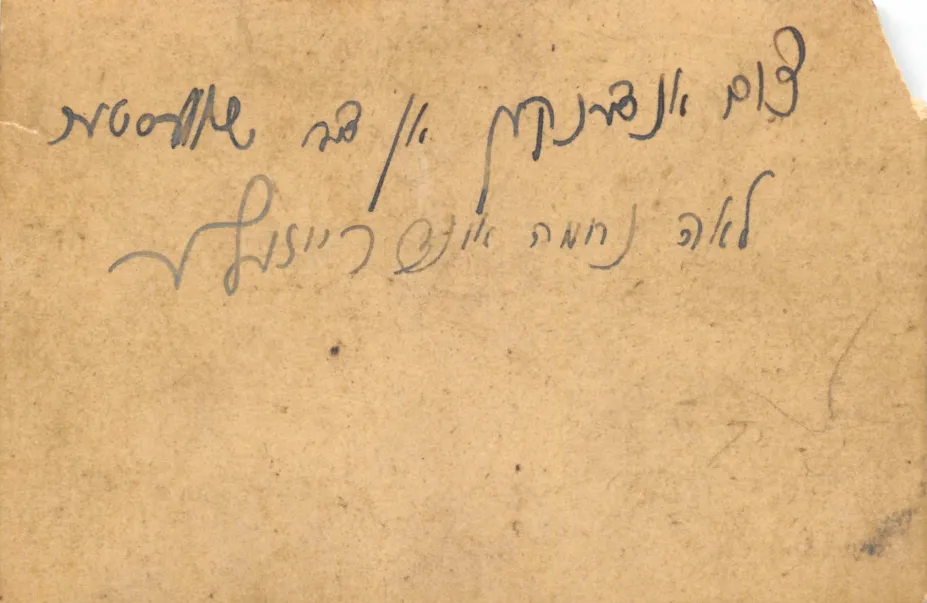 צום אנדענקען אן דער שוועסטער
לאה נחמה אונד רייזעלע